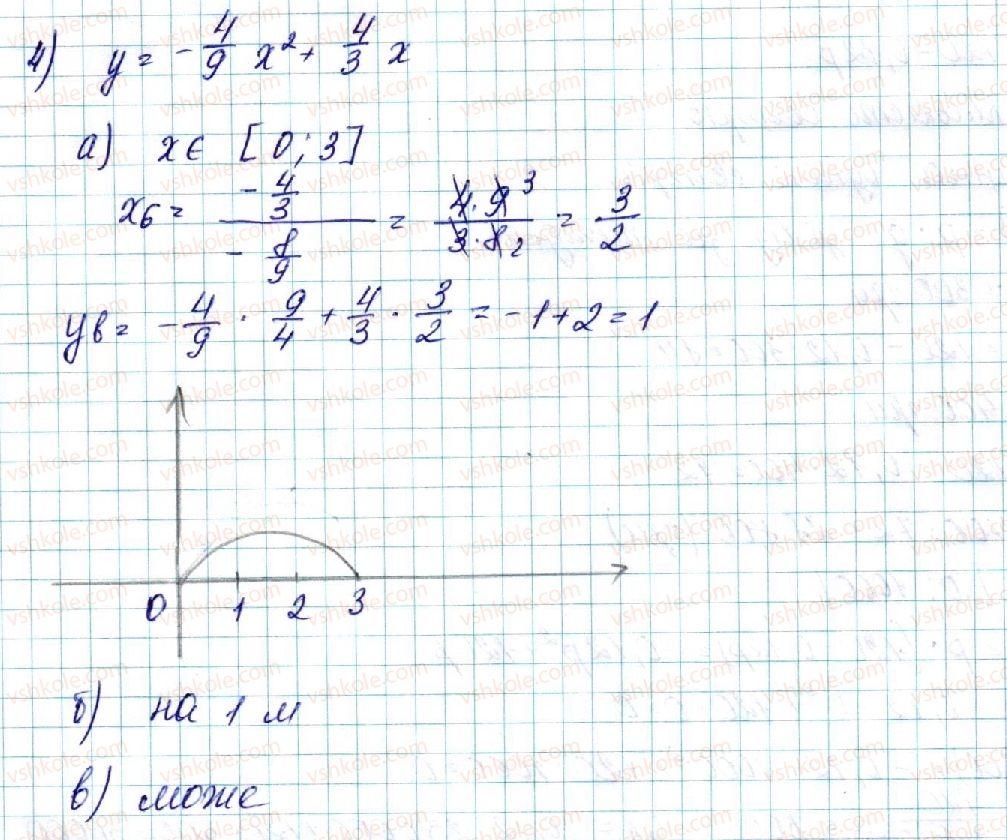 4) y = -4/9 x² + 4/3 x
а) x ∈ [0; 3]
xв = (-4/3)/(-8/9) = (4·9 3)/(3·8 2) = 3/2
yв = -4/9 · 9/4 + 4/3 · 3/2 = -1 + 2 = 1
0 1 2 3
б) на 1 м
в) може